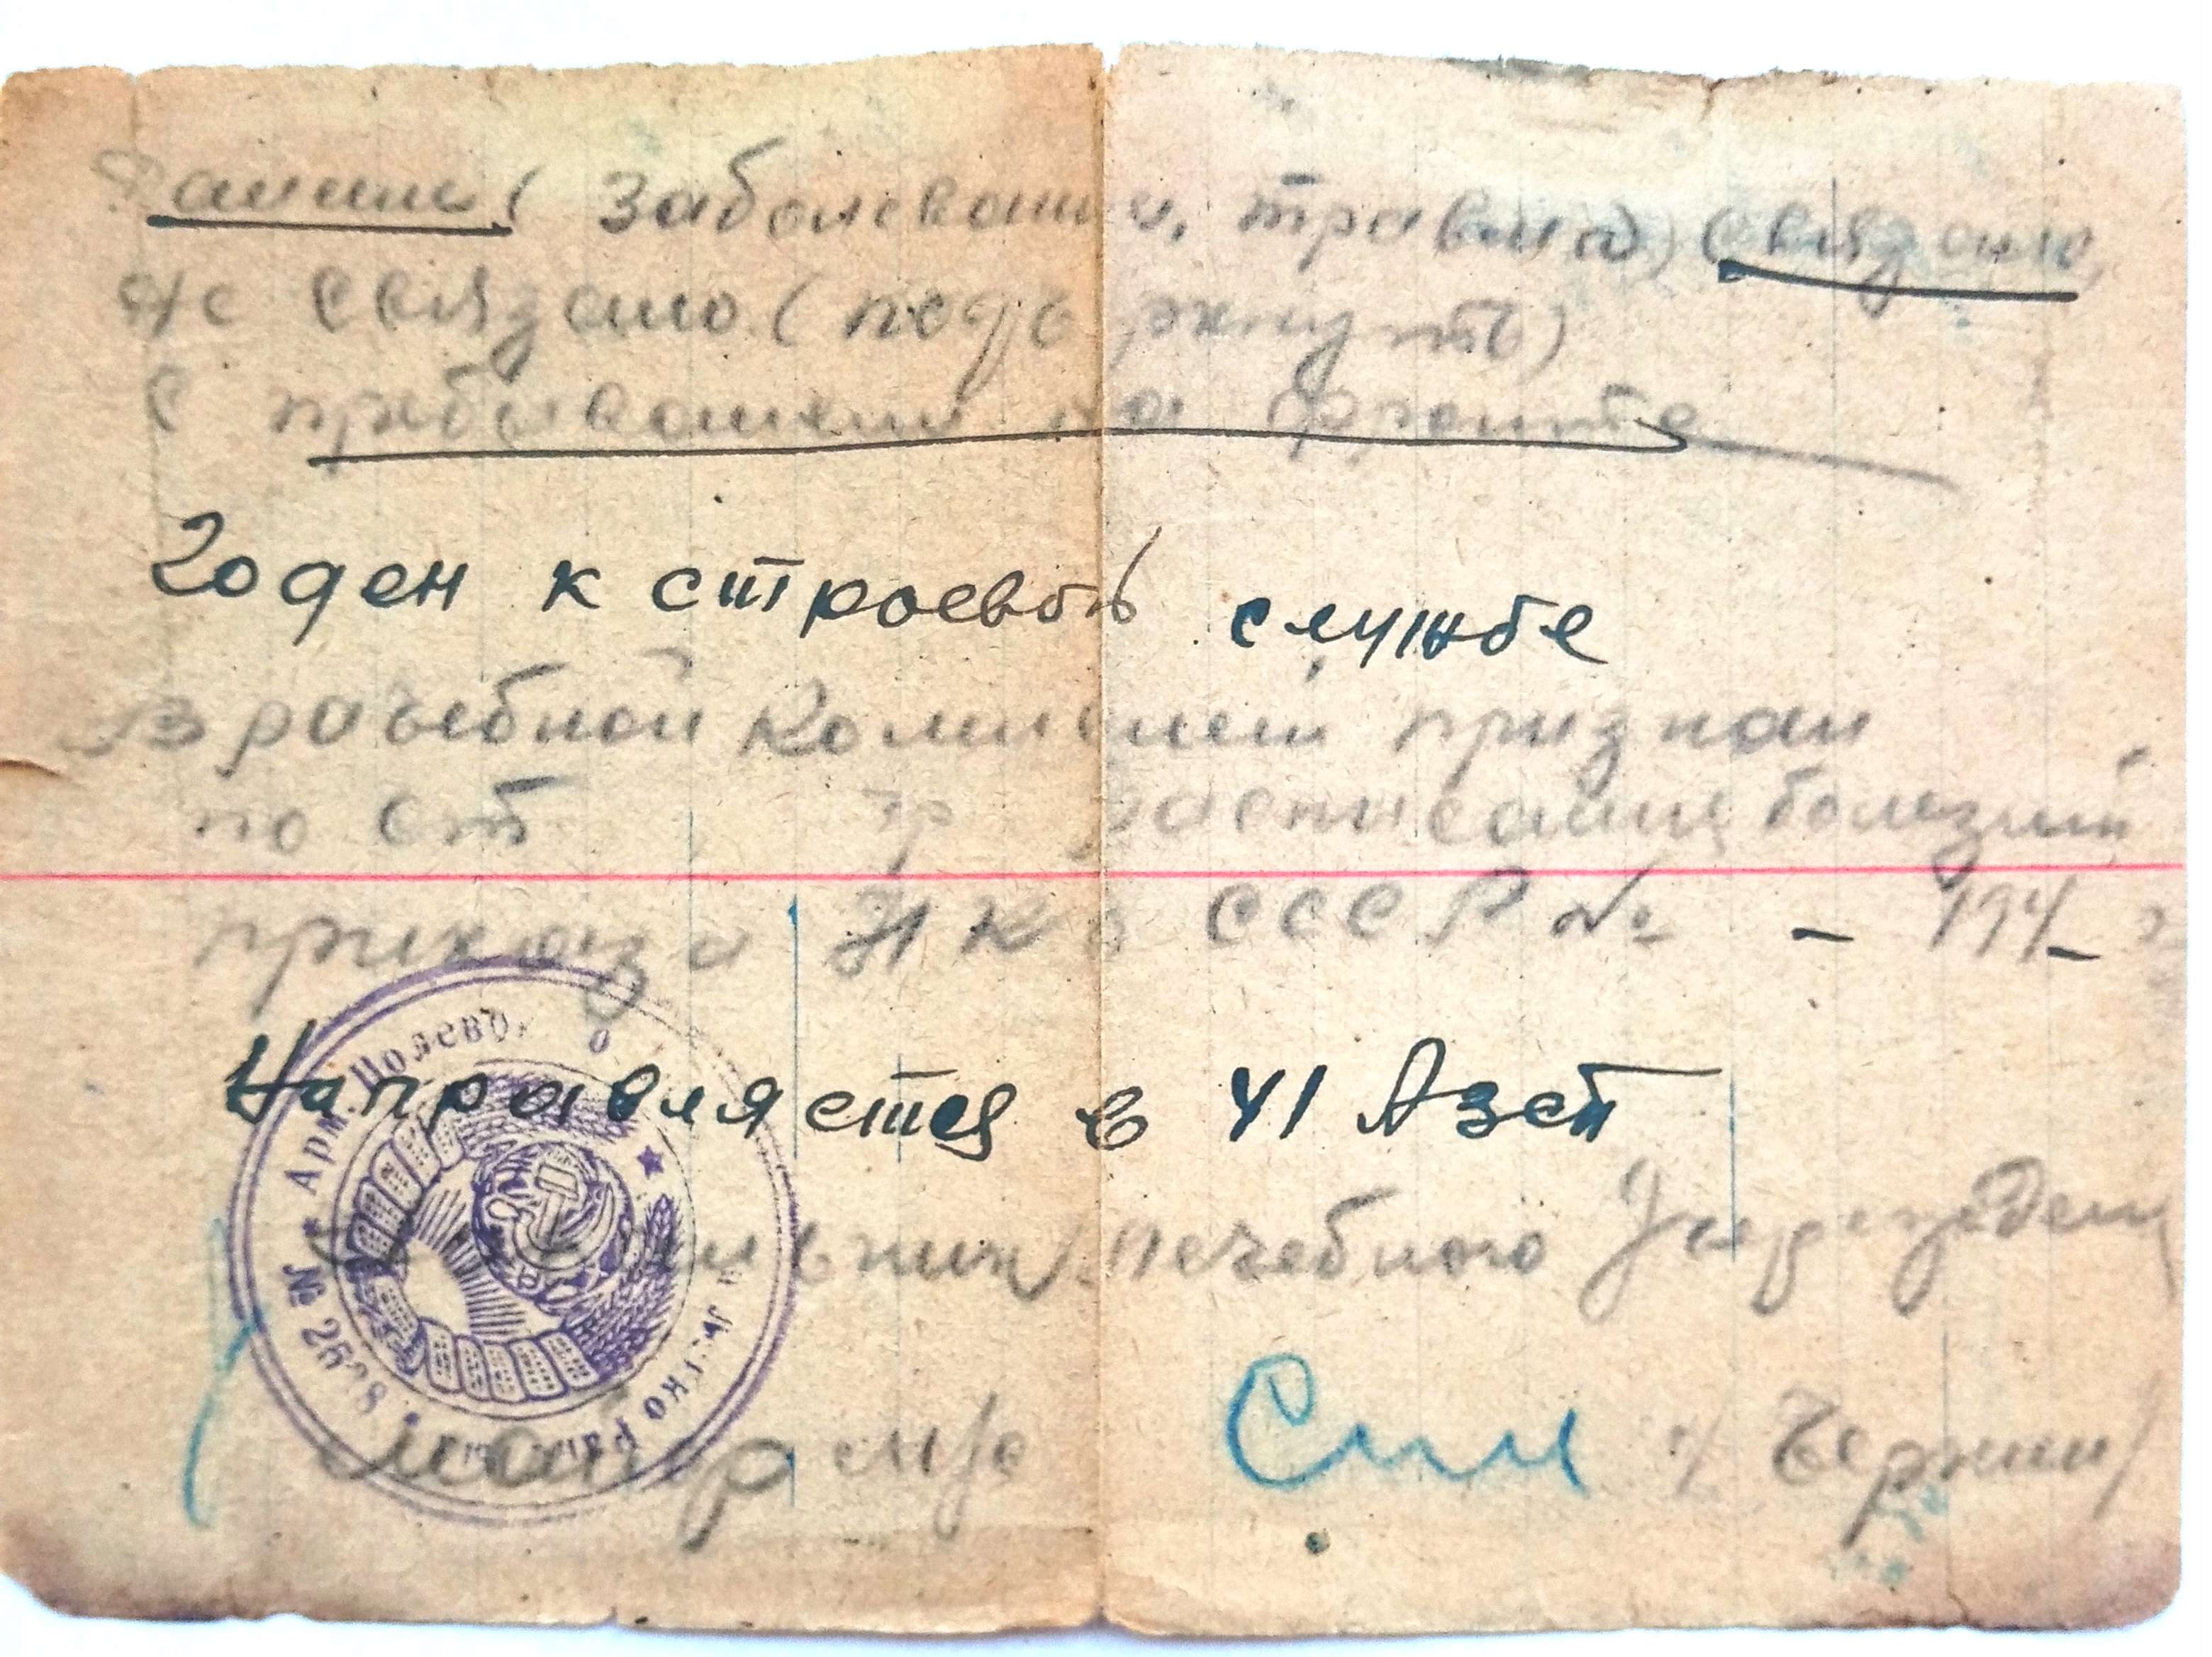 Ранение ( заболевание, травма) связано,
не связано (подчеркнуть)
с пребыванием на фронте
Годен к строевой службе
Врачебной комиссией признан
по ст гр расписания болезней
приказа НКО СССР № - 194 -
Направляется в 41 Азсп
Начальник лечебного Учрежден
майор м/с Сим / Чернин/